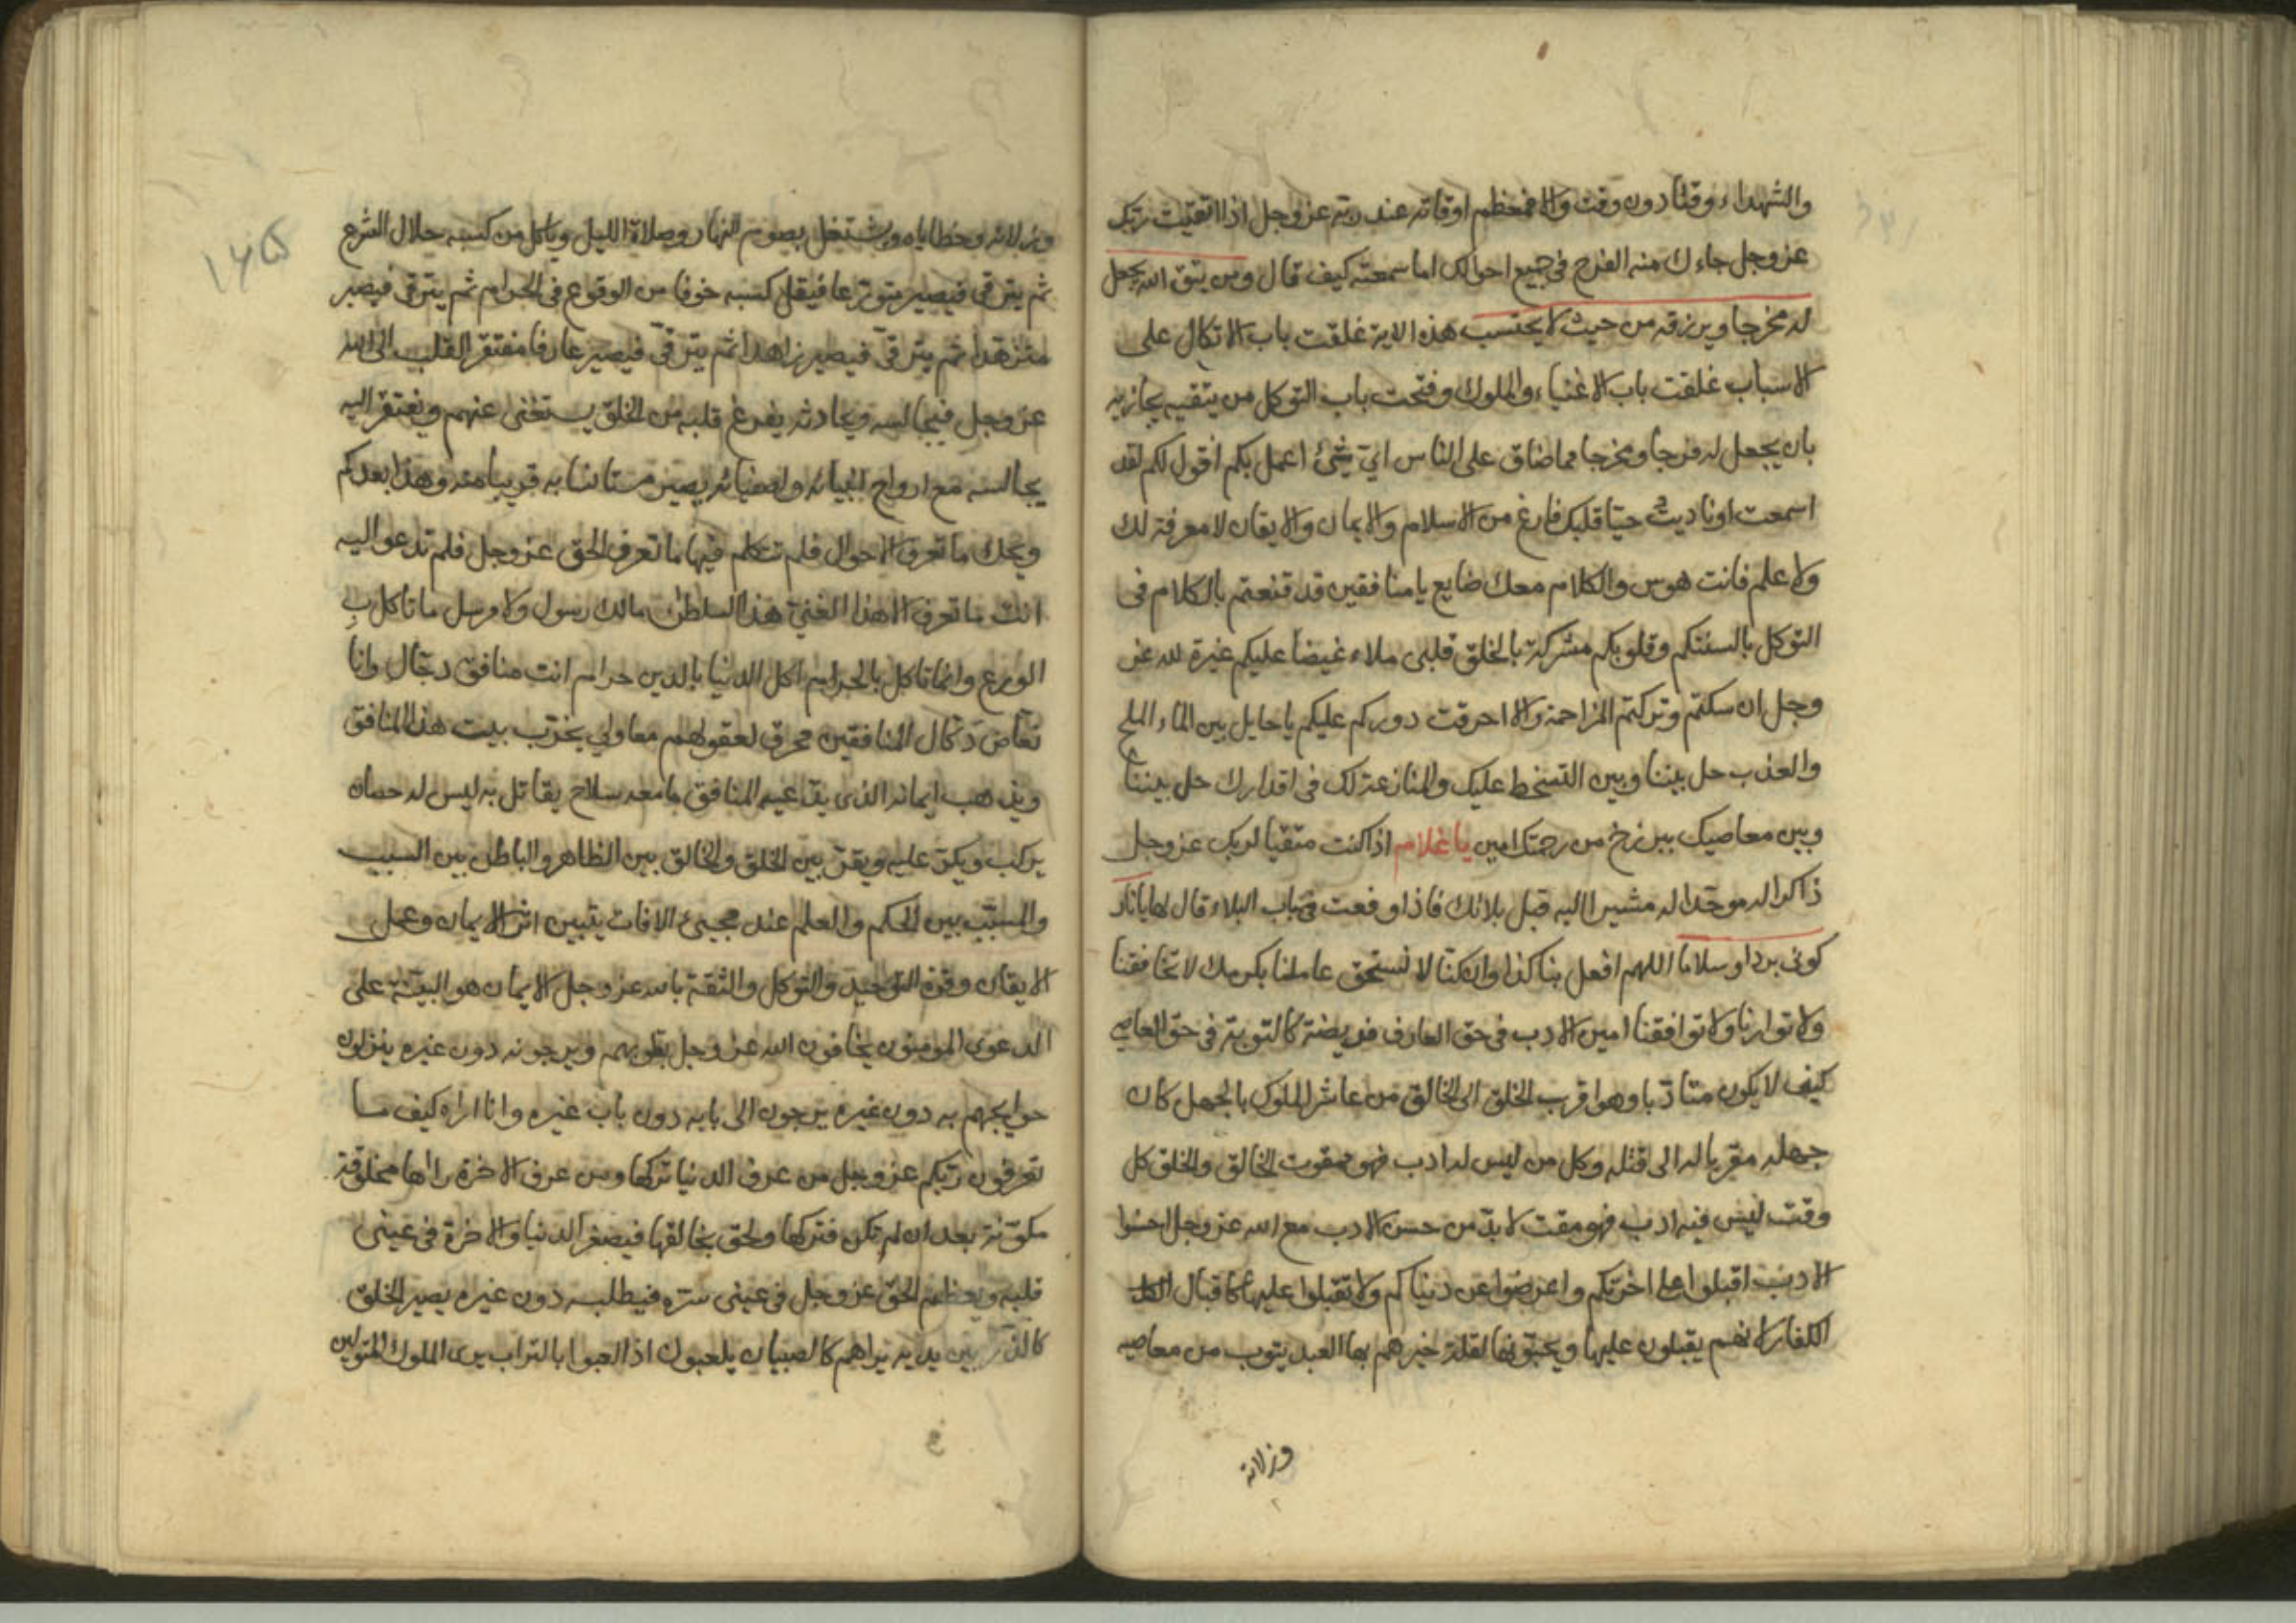 والشهداء وقتا دون وقت والا فمعظم اوقاته عند ربه عز وجل اذا اتقيت ربك
عز وجل جاءك منه الفرج في جميع احوالك اما سمعته كيف قال ومن يتق الله يجعل
له مخرجا ويرزقه من حيث لا يحتسب هذه الاية غلقت باب الاتكال على
الاسباب غلقت باب الاغنياء والملوك وفتحت باب التوكل من يتقيه يجازيه
بان يجعل له فرجا ومخرجا مما ضاق على الناس اي شئ اعمل بكم اقول لكم لقد
اسمعت لو ناديت حيا قلبك فارغ من الاسلام والايمان والايقان لا معرفة لك
ولا علم فانت هوس والكلام معك ضايع يا منافقين قد قنعتم بالكلام في
التوكل بالسنتكم وقلوبكم مشركة بالخلق قلبى ملاء غيضا عليكم غيرة لله عز
وجل ان سكتم وتركتم المزاحمة والا احرقت دوركم عليكم يا حايل بين الماء الملح
والعذب حل بيننا وبين التسخط عليك والمنازعة لك في اقدارك حل بيننا
وبين معاصيك ببرزخ من رحمتك امين يا غلام اذا كنت متقيا لربك عز وجل
ذاكرا له موحدا له مشيرا اليه قبل بلائك فاذا وقعت في باب البلاء قال لها يا نار
كونى بردا وسلاما اللهم افعل بنا كذا وان كنا لا نستحق عاملنا بكرمك لا تخافقنا
ولا توازنا ولا توافقنا امين الادب في حق العارف فريضة كالتوبة في حق العاصي
كيف لا يكون متادبا وهو اقرب الخلق الى الخالق من عاشر الملوك بالجهل كان
جهله مقربا له الى قتله وكل من ليس له ادب فهو ممقوت الخالق والخلق كل
وقت ليس فيه ادب فهو مقت لا بد من حسن الادب مع الله عز وجل احسنوا
الادب اقبلوا على اخرتكم واعرضوا عن دنياكم ولا تقبلوا عليها كاقبال
الكفار لانهم يقبلون عليها ويحبونها لقلة خبرهم بها العبد يتوب من معاصيه
وزلاته
١٤٥
وزلاته وخطاياه ويشتغل بصوم النهار وصلاة الليل وياكل من كسبه حلال الشرع
ثم يترقى فيصير متورعا فيقل كسبه خوفا من الوقوع في الحرام ثم يترقى فيصير
متزهدا ثم يترقى فيصير زاهدا ثم يترقى فيصير عارفا مفتقر القلب الى الله
عز وجل فيجالسه ويحادثه يفرغ قلبه من الخلق يستغنى عنهم ويفتقر اليه
يجالسه مع ارواح انبيائه واصفيائه يصير مستانسا به قريبا منه وهذا بعدكم
ويحك ما تعرف الاحوال فلم تتكلم فيها ما تعرف الحق عز وجل فلم تدعو اليه
انت ما تعرف الا هذا الغني هذا السلطان مالك رسول ولا مرسل ما تاكل ب
الورع وانما تاكل بالحرام اكل الدنيا بالدين حرام انت منافق دجال وانا
المنافقين محرق لعقولهم معاولي يخرب بيت هذا المنافق
ويذهب ايمانه الذى يدعيه المنافق ما معه سلاح يقاتل به ليس له حصان
يركب ويكر عليه ويفر بين الخلق والخالق بين الظاهر والباطن بين السبب
والمسبب بين الحكم والعلم عند مجيئ الافات يتبين اثر الايمان وعمل
الايقان وقوة التوحيد والتوكل والثقة بالله عز وجل الايمان هو البينة على
الدعوى المومنون يخافون الله عز وجل بقلوبهم ويرجونه دون غيره ينزلون
حوايجهم به دون غيره يرجون الى بابه دون باب غيره وانا اراه كيف ما
تعرفون ربكم عز وجل من عرف الدنيا تركها ومن عرف الاخرة راها مخلوقة
مكونة بعد ان لم تكن فتركها ولحق بخالقها فيصغر الدنيا والاخرة في عينى
قلبه ويعظم الحق عز وجل في عينى سره فيطلبه دون غيره يصير الخلق
كالذر بين يديه يراهم كالصبيان يلعبون اذا لعبوا بالتراب يرى الملوك المتولين